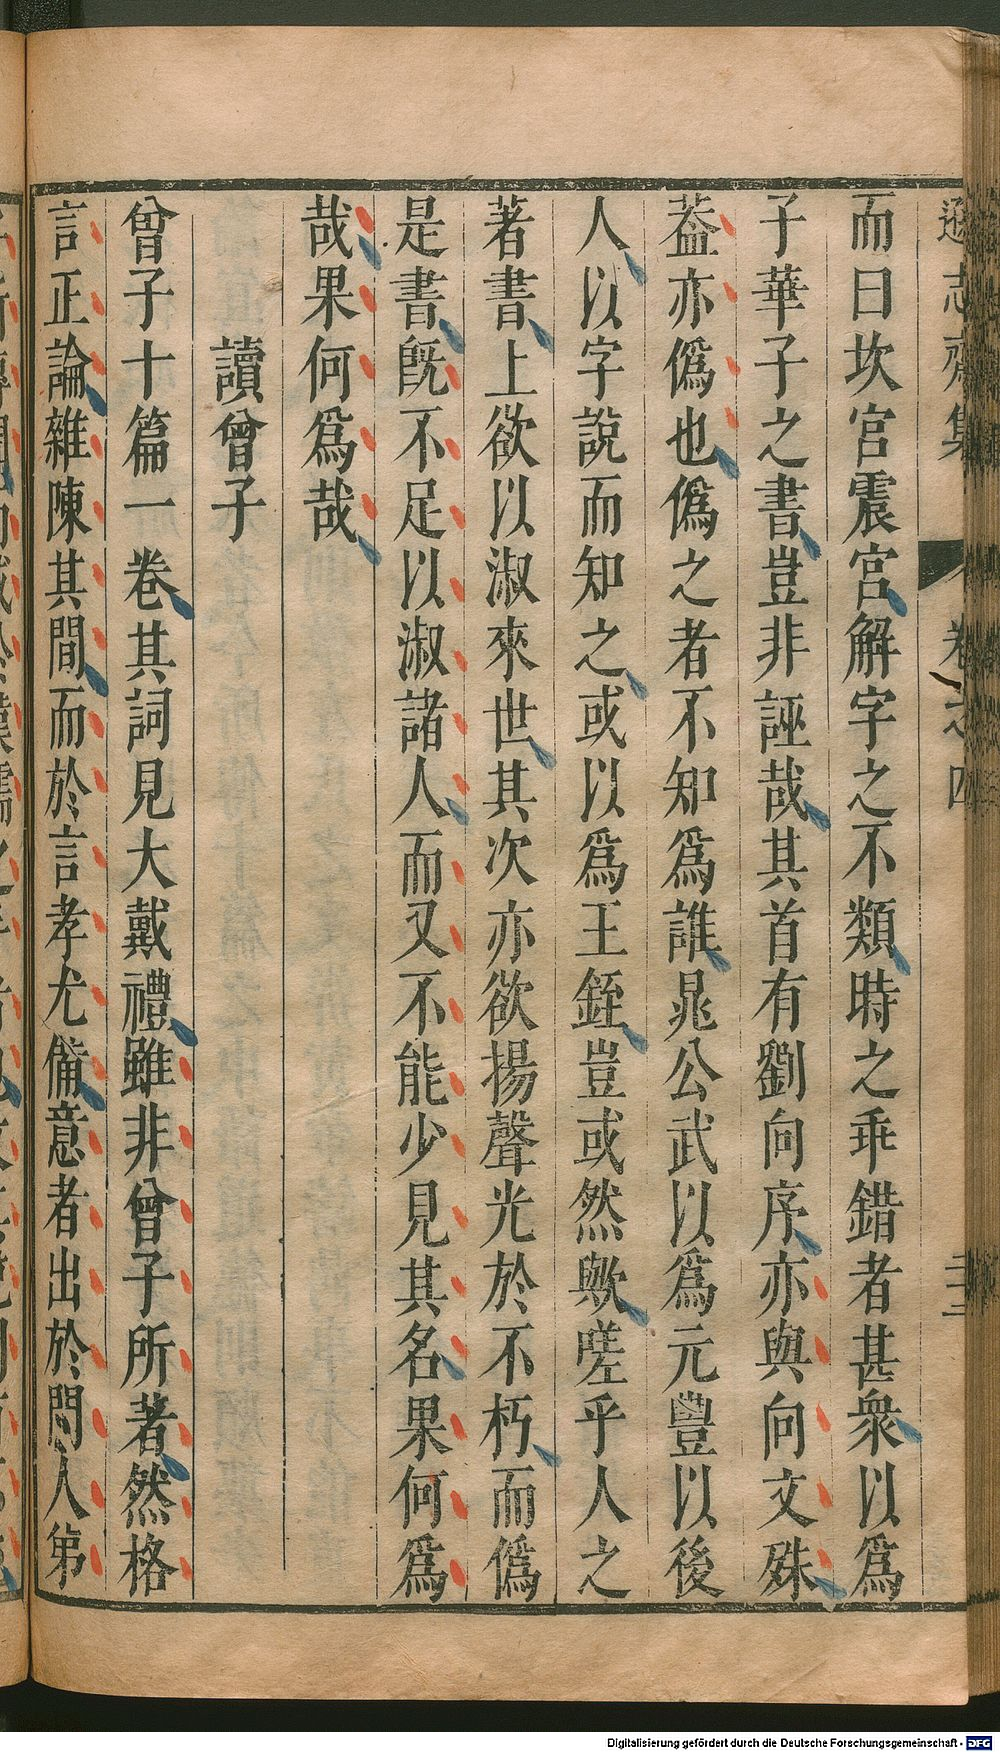 遜志齋集 卷之四
而曰坎宮震宮解字之不類時之乖錯者甚衆以爲
子華子之書豈非誣哉其首有劉向序亦與向文殊
葢亦僞也僞之者不知爲誰晁公武以爲元豐以後
人以字說而知之或以爲王銍豈或然歟嗟乎人之
著書上欲以淑來世其次亦欲揚聲光於不朽而僞
是書旣不足以淑諸人而又不能少見其名果何爲
哉果何爲哉
讀曾子
曾子十篇一卷其詞見大戴禮雖非曾子所著然格
言正論雜陳其間而於言孝尤備意者出於門人弟
Digitalisierung gefördert durch die Deutsche Forschungsgemeinschaft - DFG